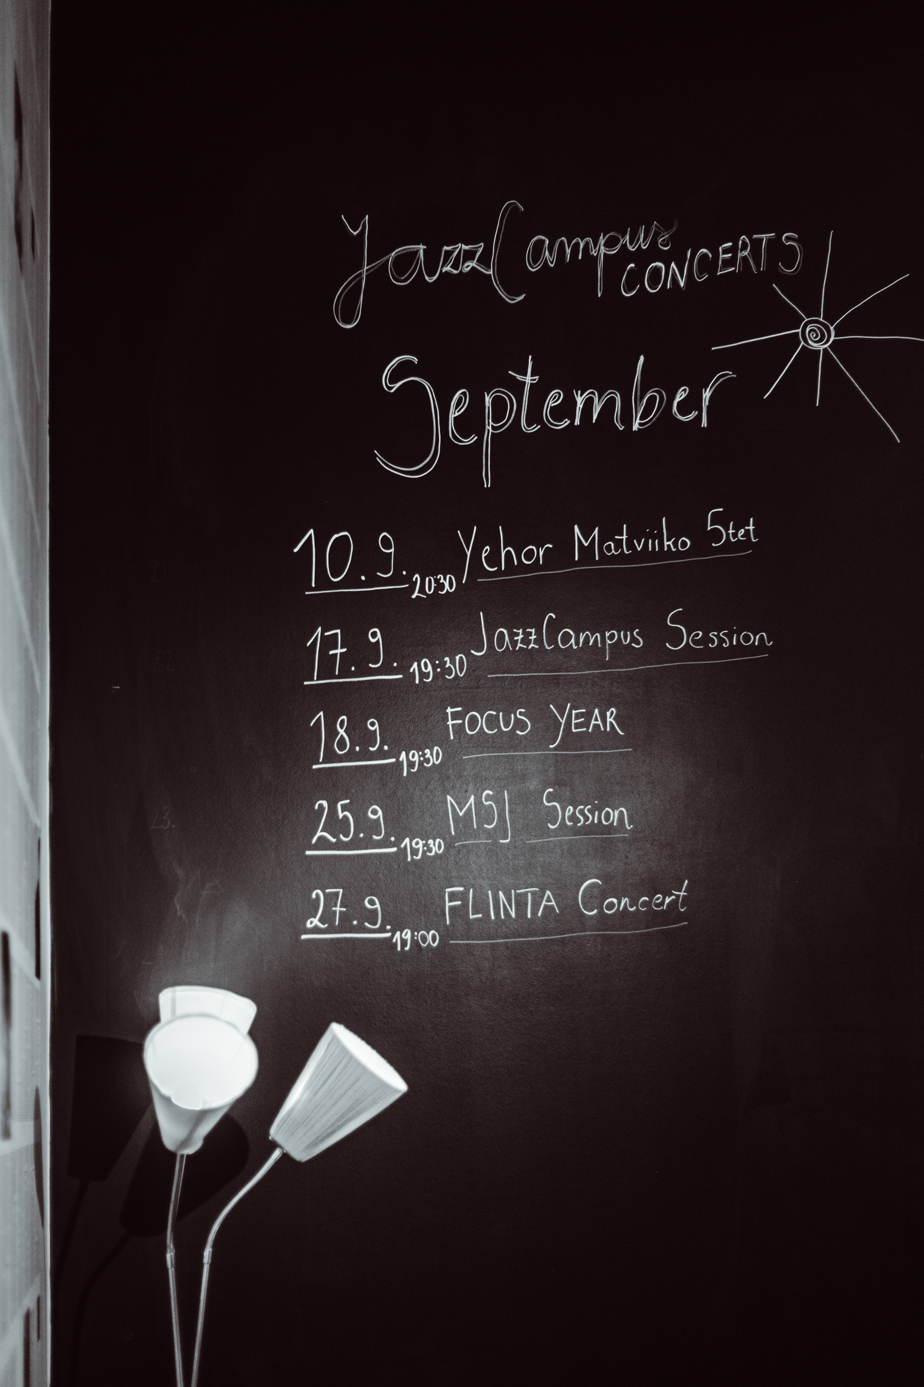 JazzCampus
CONCERTS
September
10.9. 20:30 Yehor Matviiko 5tet
17.9. 19:30 JazzCampus Session
18.9. 19:30 FOCUS YEAR
25.9. 19:30 MSJ Session
27.9. 19:00 FLINTA Concert